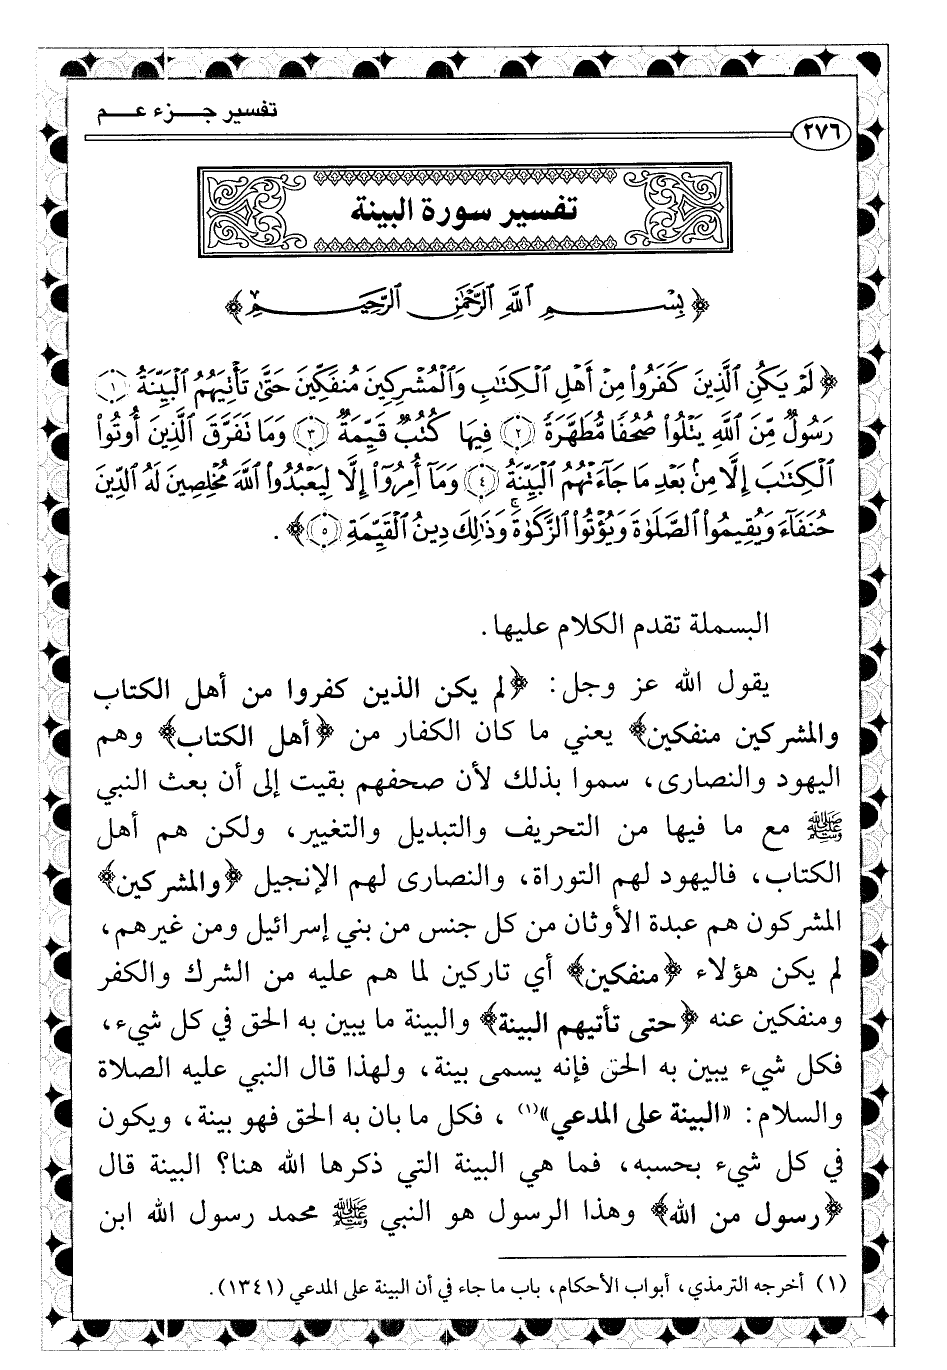 تفسير جـــزء عـــم
٢٧٦
تفسير سورة البينة
﴿بِسْمِ اللَّهِ الرَّحْمَٰنِ الرَّحِيمِ﴾
﴿لَمْ يَكُنِ الَّذِينَ كَفَرُوا مِنْ أَهْلِ الْكِتَابِ وَالْمُشْرِكِينَ مُنفَكِّينَ حَتَّىٰ تَأْتِيَهُمُ الْبَيِّنَةُ ١
رَسُولٌ مِّنَ اللَّهِ يَتْلُوا صُحُفًا مُّطَهَّرَةً ٢ فِيهَا كُتُبٌ قَيِّمَةٌ ٣ وَمَا تَفَرَّقَ الَّذِينَ أُوتُوا
الْكِتَابَ إِلَّا مِن بَعْدِ مَا جَاءَتْهُمُ الْبَيِّنَةُ ٤ وَمَا أُمِرُوا إِلَّا لِيَعْبُدُوا اللَّهَ مُخْلِصِينَ لَهُ الدِّينَ
حُنَفَاءَ وَيُقِيمُوا الصَّلَوٰةَ وَيُؤْتُوا الزَّكَوٰةَ وَذَٰلِكَ دِينُ الْقَيِّمَةِ ٥﴾ .
البسملة تقدم الكلام عليها.
يقول الله عز وجل: ﴿لم يكن الذين كفروا من أهل الكتاب
والمشركين منفكين﴾ يعني ما كان الكفار من ﴿أهل الكتاب﴾ وهم
اليهود والنصارى، سموا بذلك لأن صحفهم بقيت إلى أن بعث النبي
ﷺ مع ما فيها من التحريف والتبديل والتغيير، ولكن هم أهل
الكتاب، فاليهود لهم التوراة، والنصارى لهم الإنجيل ﴿والمشركين﴾
المشركون هم عبدة الأوثان من كل جنس من بني إسرائيل ومن غيرهم،
لم يكن هؤلاء ﴿منفكين﴾ أي تاركين لما هم عليه من الشرك والكفر
ومنفكين عنه ﴿حتى تأتيهم البينة﴾ والبينة ما يبين به الحق في كل شيء،
فكل شيء يبين به الحق فإنه يسمى بينة، ولهذا قال النبي عليه الصلاة
والسلام: «البينة على المدعي»(١) ، فكل ما بان به الحق فهو بينة، ويكون
في كل شيء بحسبه، فما هي البينة التي ذكرها الله هنا؟ البينة قال
﴿رسول من الله﴾ وهذا الرسول هو النبي ﷺ محمد رسول الله ابن
(١) أخرجه الترمذي، أبواب الأحكام، باب ما جاء في أن البينة على المدعي (١٣٤١).